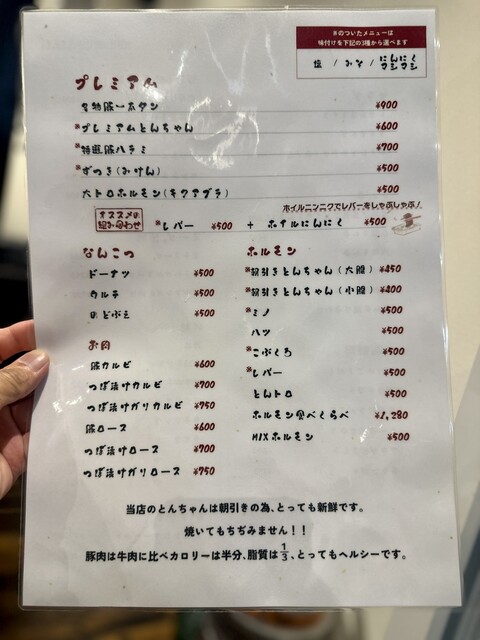 ※のついたメニューは
味付けを下記の3種から選べます
塩 / みそ / にんにくマシマシ
プレミアム
名物豚一本タン ¥900
※プレミアムとんちゃん ¥600
※特選豚ハラミ ¥700
※ずつき(みけん) ¥500
大トロホルモン(キクアブラ) ¥500
ホイルニンニクでレバーをしゃぶしゃぶ!
オススメの組み合わせ ※レバー ¥500 + ホイルにんにく ¥500
なんこつ
ドーナツ ¥500
カルテ ¥500
のどぶえ ¥500
お肉
豚カルビ ¥600
つぼ漬けカルビ ¥700
つぼ漬けガリカルビ ¥750
豚ロース ¥600
つぼ漬けロース ¥700
つぼ漬けガリロース ¥750
ホルモン
※朝引きとんちゃん(大腸) ¥450
※朝引きとんちゃん(小腸) ¥400
※ミノ ¥500
ハツ ¥500
※こぶくろ ¥500
※レバー ¥500
とんトロ ¥500
ホルモン食べくらべ ¥1,280
MIXホルモン ¥500
当店のとんちゃんは朝引きの為、とっても新鮮です。
焼いてもちぢみません!!
豚肉は牛肉に比べカロリーは半分、脂質は1/3、とってもヘルシーです。